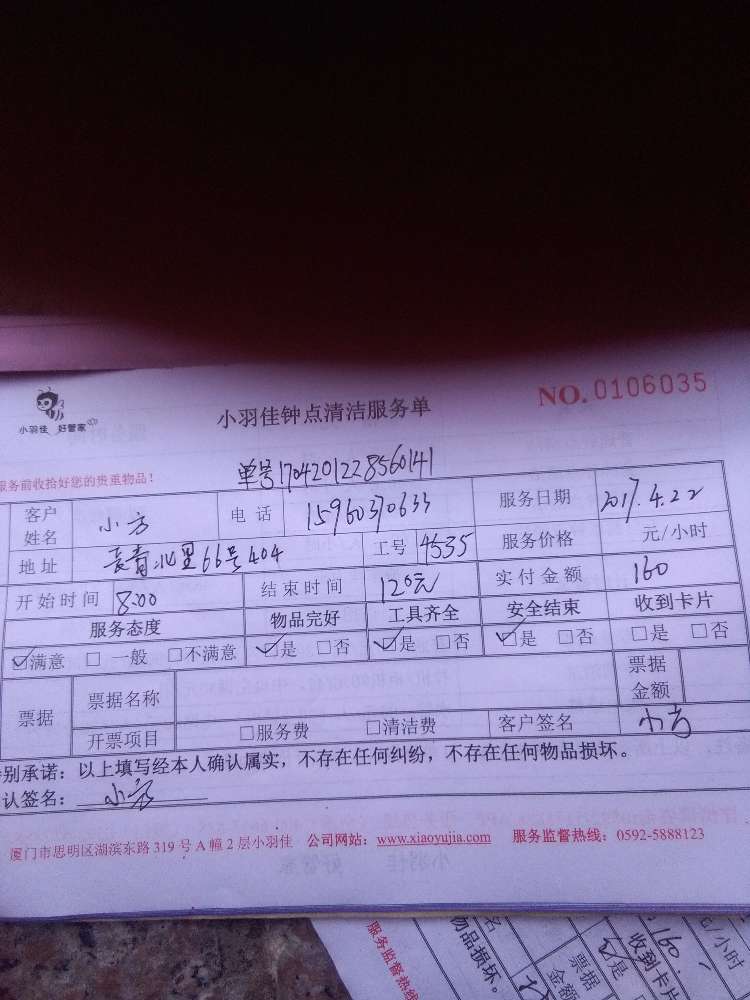 小羽佳 好管家
小羽佳钟点清洁服务单
NO. 0106035
服务前收拾好您的贵重物品！
单号1704201228560141
客户姓名 小方 电话 15960370633 服务日期 2017.4.22
地址 长青北里66号404 工号 4535 服务价格 元/小时
开始时间 8:00 结束时间 12:00 实付金额 160
服务态度 物品完好 工具齐全 安全结束 收到卡片
☑满意 □一般 □不满意 ☑是 □否 ☑是 □否 ☑是 □否 □是 □否
票据 票据名称 票据金额
开票项目 □服务费 □清洁费 客户签名 小方
别承诺：以上填写经本人确认属实，不存在任何纠纷，不存在任何物品损坏。
认签名：小方
厦门市思明区湖滨东路319号A幢2层小羽佳 公司网站：www.xiaoyujia.com 服务监督热线：0592-5888123
元/小时
160
收到卡片
是
票据
金额
物品损坏。
服务监督热线